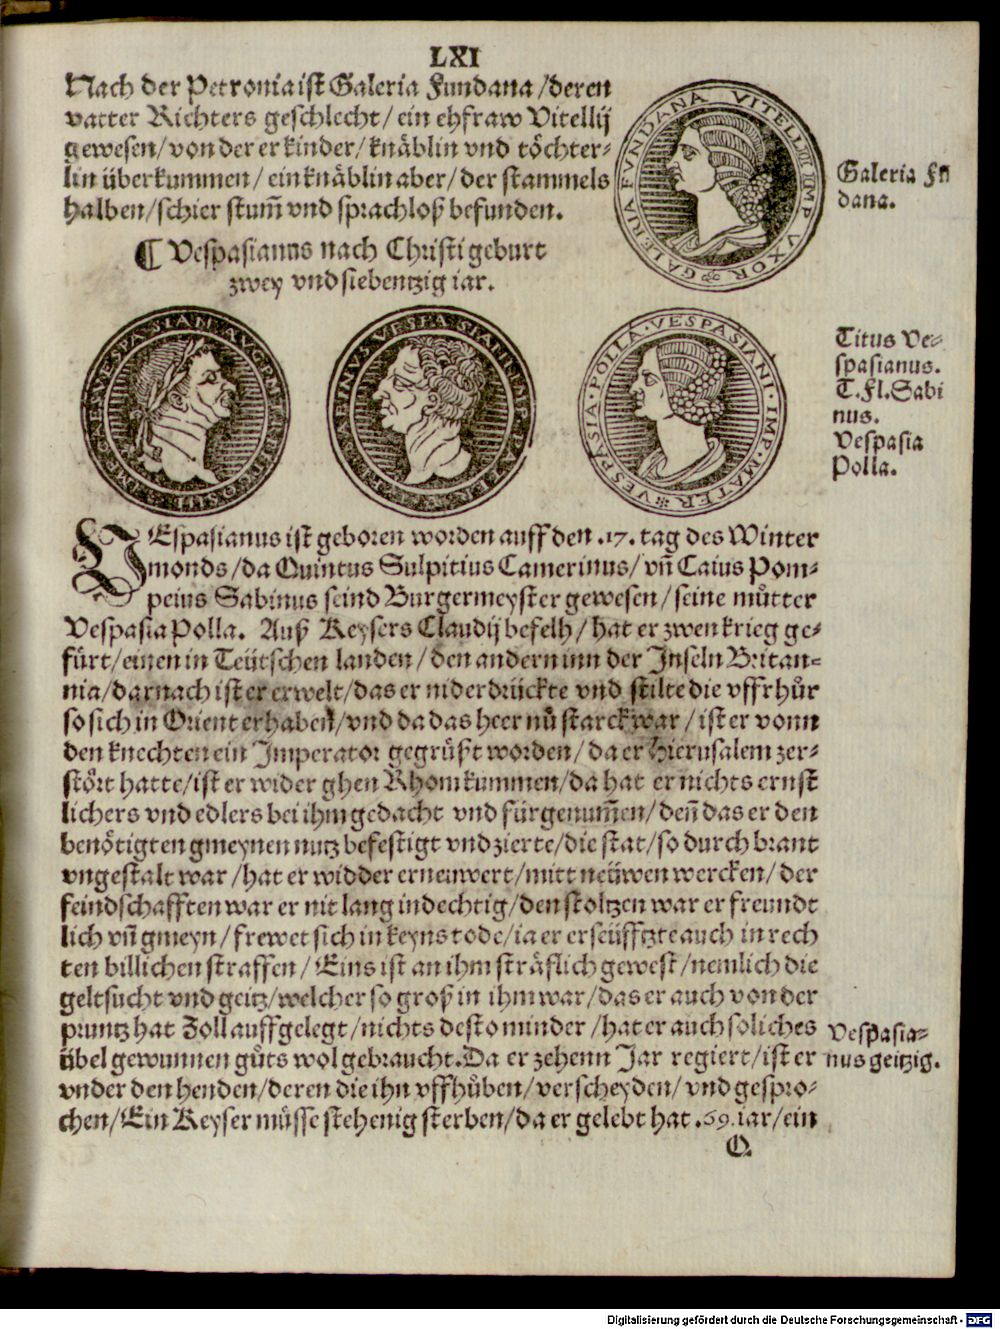 LXI
Nach der Petronia ist Galeria Fundana / deren
vatter Richters geschlecht / ein ehfraw Vitellij
gewesen / von der er kinder / knäblin vnd töchter-
lin überkummen / ein knäblin aber / der stammels
halben / schier stum̃ vnd sprachloß befunden.
GALERIA FUNDANA VITELLII IMP VXOR
Galeria Fũ
dana.
¶ Vespasianus nach Christi geburt
zwey vnd siebentzig iar.
VESPASIA · POLLA · VESPASIANI · IMP · MATER
Titus Ve-
spasianus.
T. Fl. Sabi
nus.
Vespasia
Polla.
VEspasianus ist geboren worden auff den .17. tag des Winter
monds / da Quintus Sulpitius Camerinus / vñ Caius Pom-
peius Sabinus seind Burgermeyster gewesen / seine můtter
Vespasia Polla. Auß Keysers Claudij befelh / hat er zwen krieg ge-
fürt / einen in Teütschen landen / den andern inn der Inseln Britan-
nia / darnach ist er erwelt / das er niderdrückte vnd stilte die vffrhůr
so sich in Orient erhaben / vnd da das heer nů starck war / ist er vonn
den knechten ein Imperator gegrüßt worden / da er Hierusalem zer-
stört hatte / ist er wider ghen Rhom kummen / da hat er nichts ernst
lichers vnd edlers bei ihm gedacht vnd fürgenum̃en / deñ das er den
benötigten gmeynen nutz befestigt vnd zierte / die stat / so durch brant
vngestalt war / hat er widder erneuwert / mitt neüwen wercken / der
feindschafften war er nit lang indechtig / den stoltzen war er freundt
lich vñ gmeyn / frewet sich in keyns tode / ia er erseüfftzte auch in rech
ten billichen straffen / Eins ist an ihm sträflich gewest / nemlich die
geltsucht vnd geitz / welcher so groß in ihm war / das er auch von der
pruntz hat Zoll auffgelegt / nichts desto minder / hat er auch soliches
übel gewunnen gůts wol gebraucht. Da er zehenn Jar regiert / ist er
vnder den henden / deren die ihn vffhůben / verscheyden / vnd gespro-
chen / Ein Keyser müsse stehenig sterben / da er gelebt hat .69. iar / ein
Vespasia-
nus geitzig.
Q
Digitalisierung gefördert durch die Deutsche Forschungsgemeinschaft - DFG